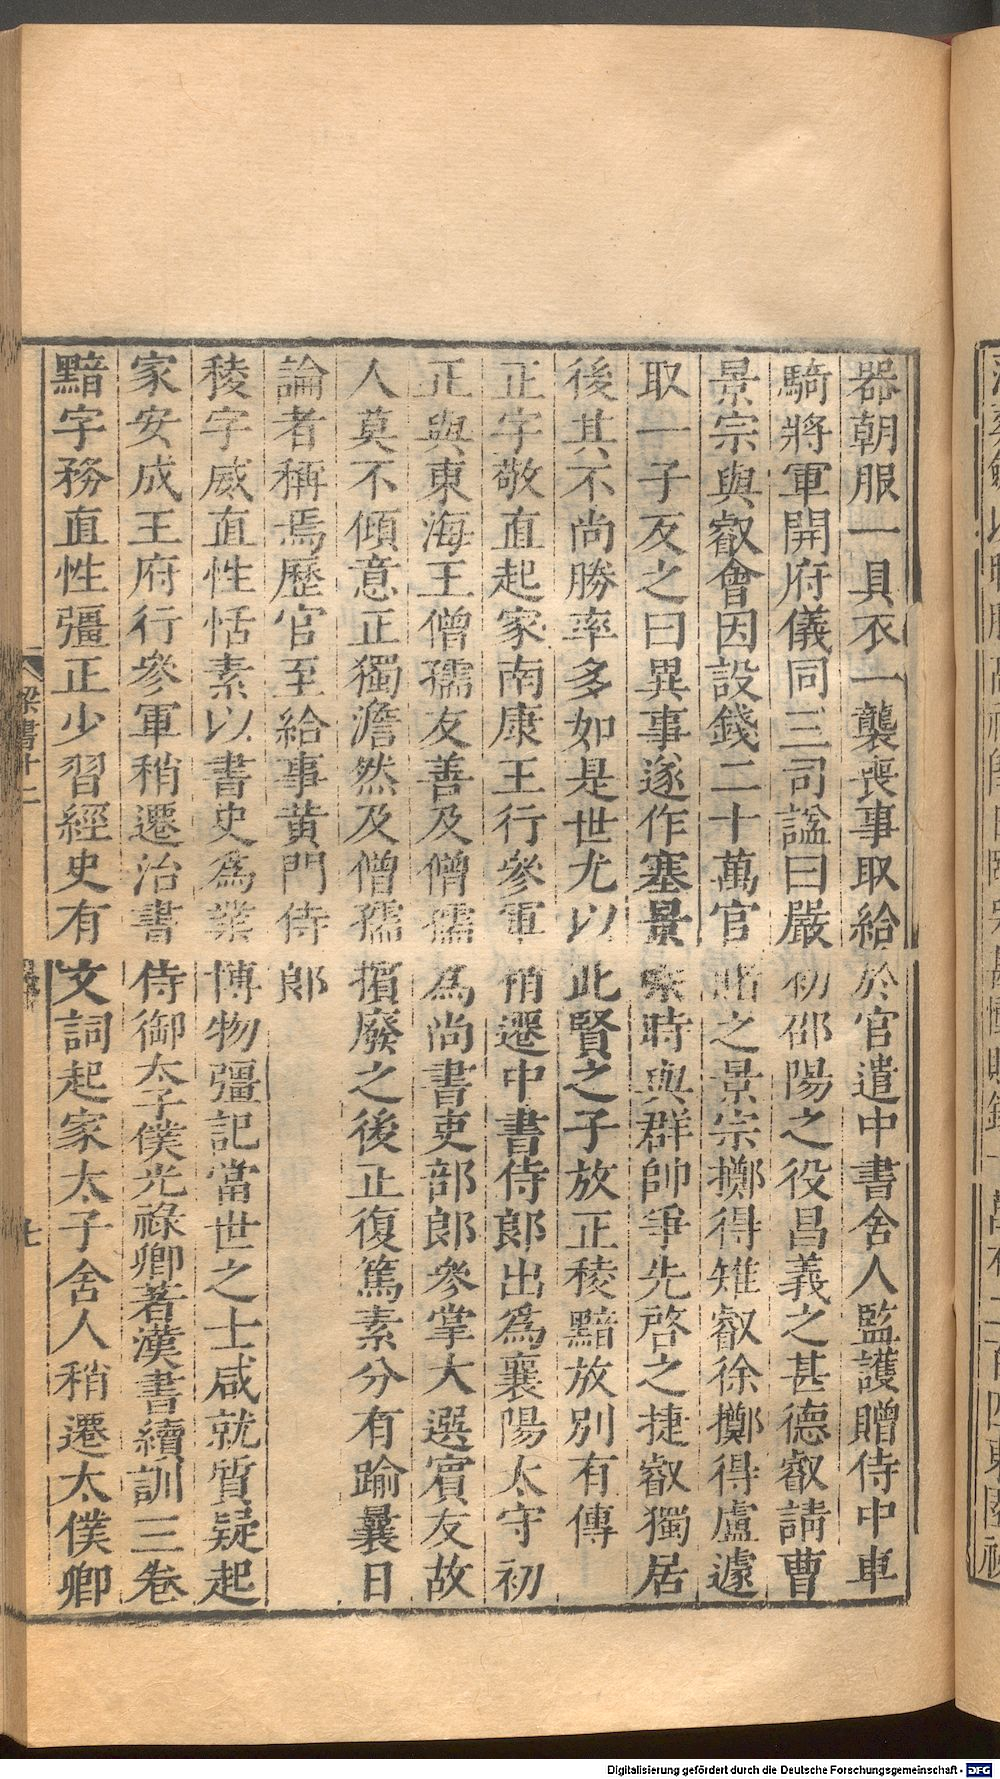 器朝服一具衣一襲喪事取給於官遣中書舍人監護贈侍中車
騎將軍開府儀同三司謚曰嚴初邵陽之役昌義之甚德叡請曹
景宗與叡會因設錢二十萬官賭之景宗擲得雉叡徐擲得盧遽
取一子反之曰異事遂作塞景宗時與群帥爭先啓之捷叡獨居
後其不尚勝率多如是世尤以此賢之子放正稜黯放別有傳
正字敬直起家南康王行參軍稍遷中書侍郎出爲襄陽太守初
正與東海王僧孺友善及僧孺爲尚書吏部郎參掌大選賓友故
人莫不傾意正獨澹然及僧孺擯廢之後正復篤素分有踰曩日
論者稱焉歷官至給事黃門侍郎
稜字威直性恬素以書史爲業博物彊記當世之士咸就質疑起
家安成王府行參軍稍遷治書侍御太子僕光祿卿著漢書續訓三卷
黯字務直性彊正少習經史有文詞起家太子舍人稍遷太僕卿
梁書十二
七
Digitalisierung gefördert durch die Deutsche Forschungsgemeinschaft - DFG